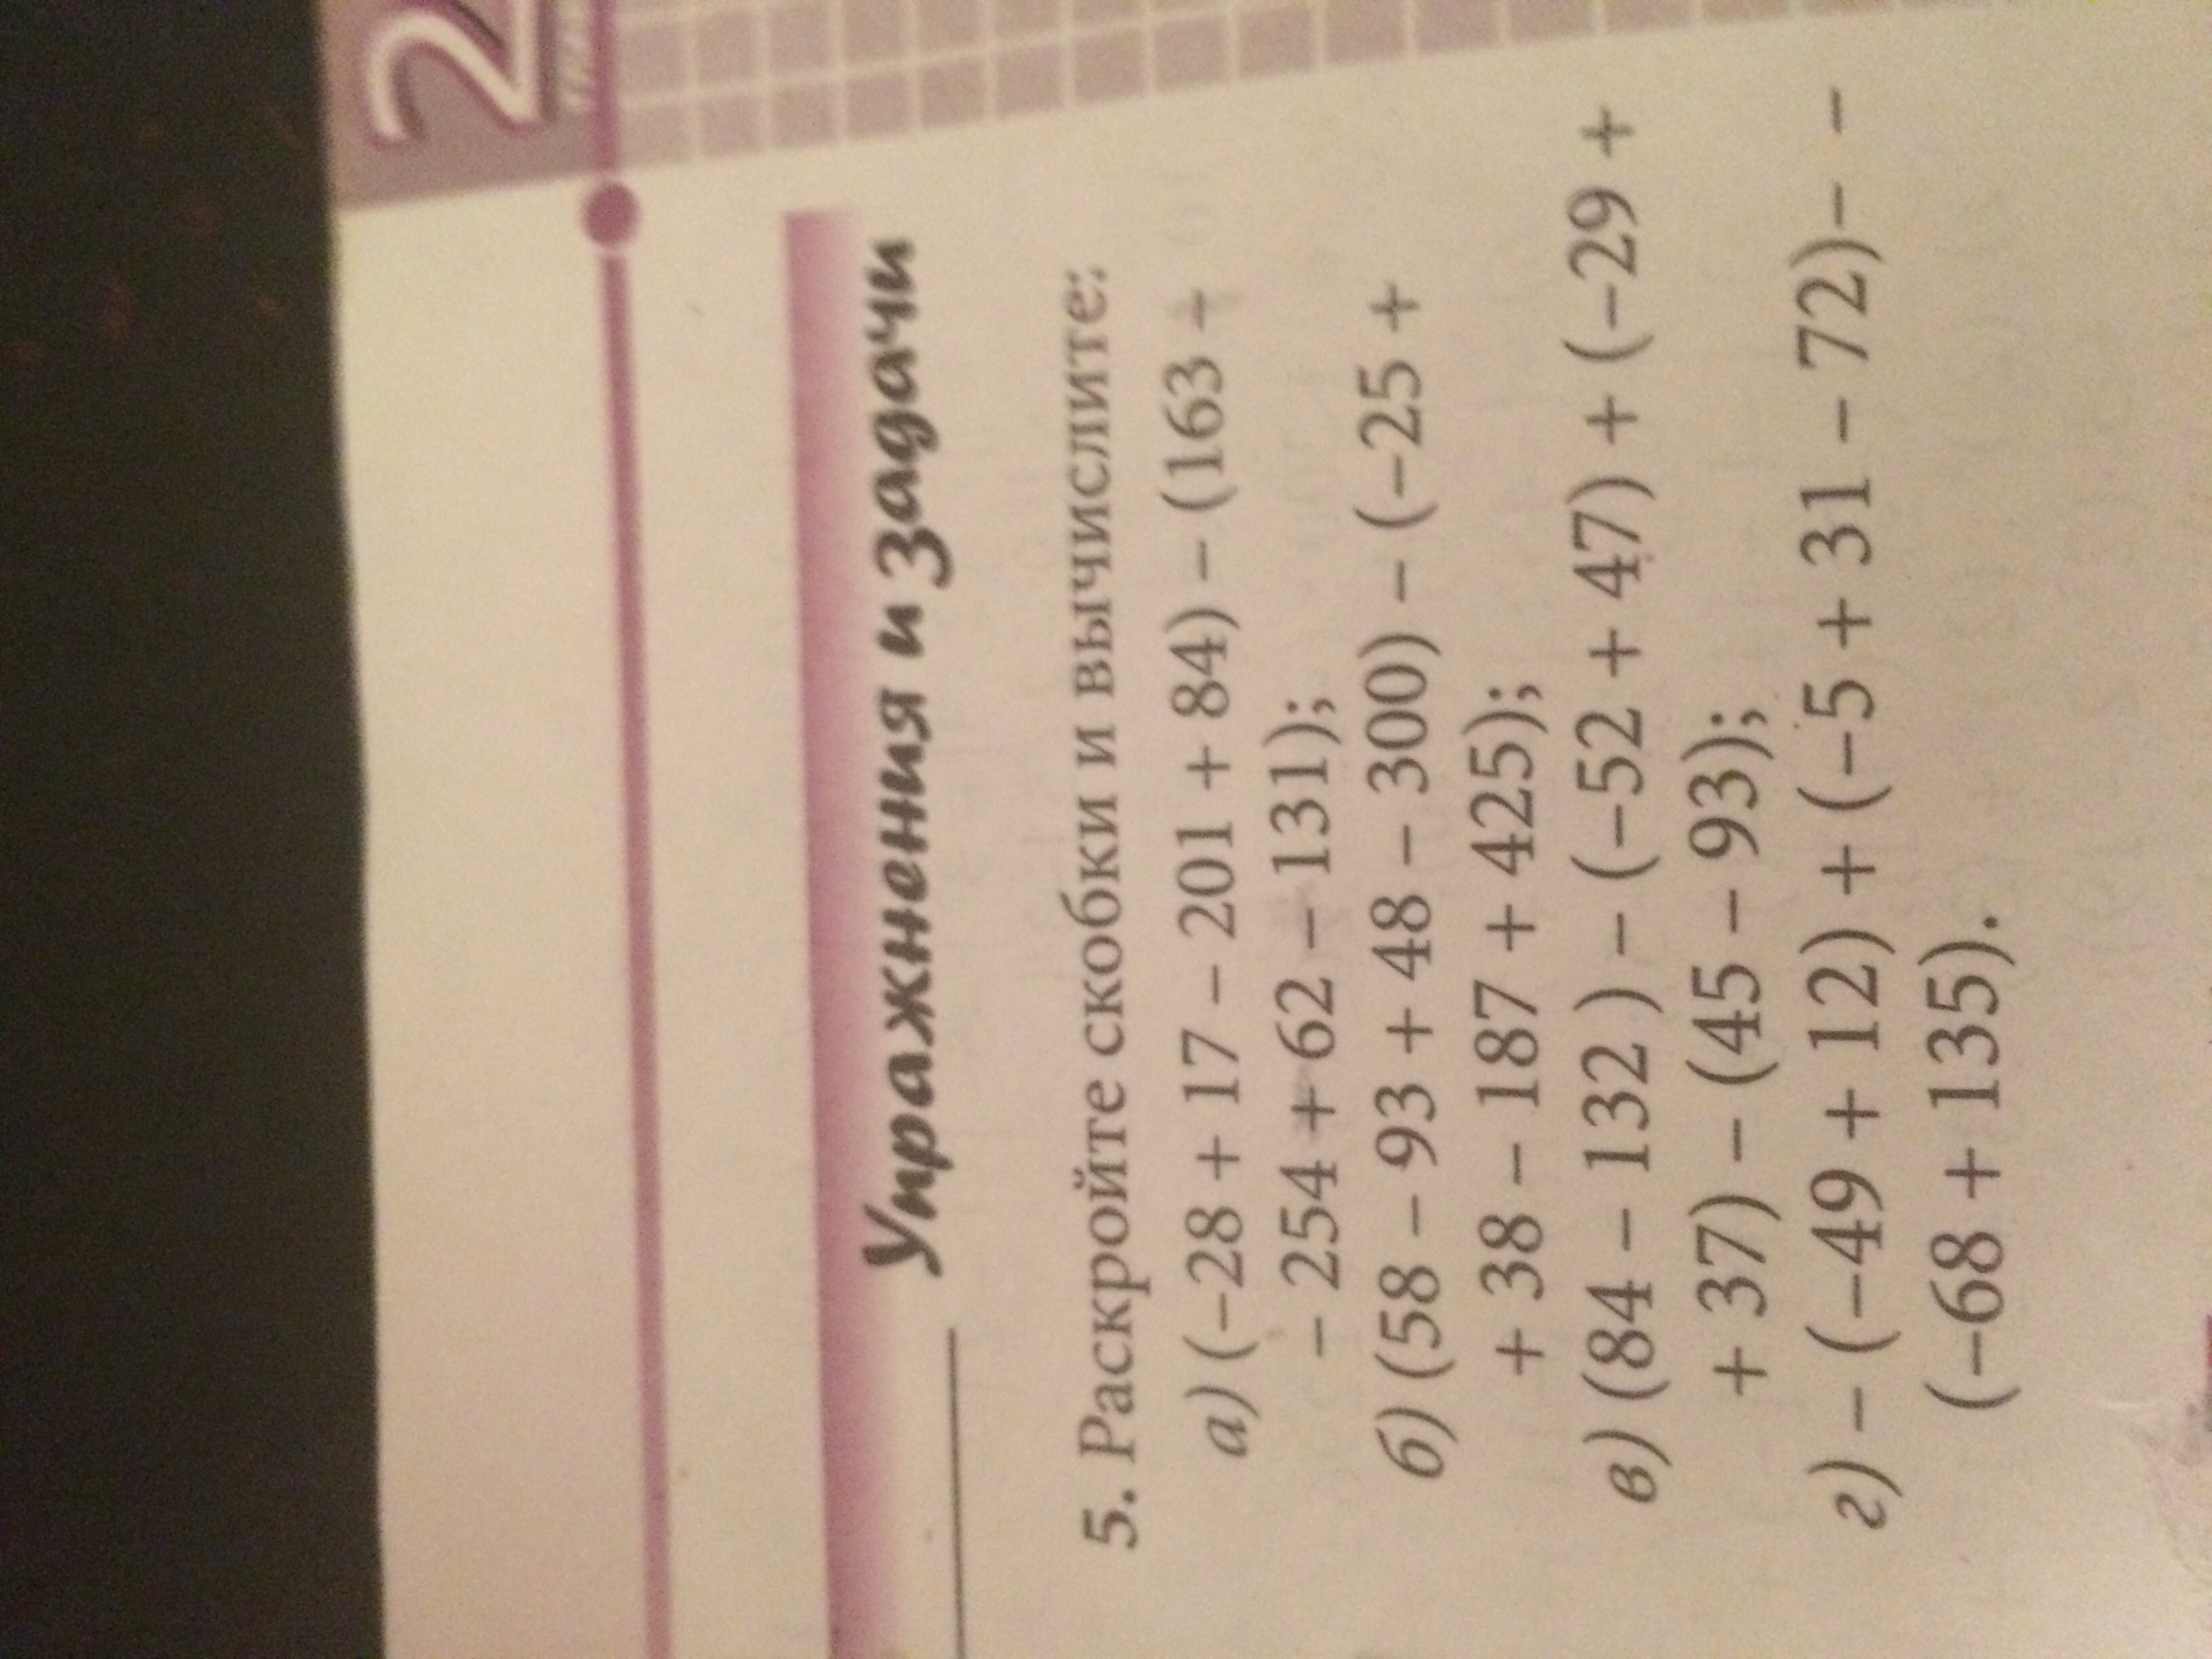 2
Упражнения и задачи
5. Раскройте скобки и вычислите:
а) (−28 + 17 − 201 + 84) − (163 −
− 254 + 62 − 131);
б) (58 − 93 + 48 − 300) − (−25 +
+ 38 − 187 + 425);
в) (84 − 132 ) − (−52 + 47) + (−29 +
+ 37) − (45 − 93);
г) − (−49 + 12) + (−5 + 31 − 72)− −
(−68 + 135).